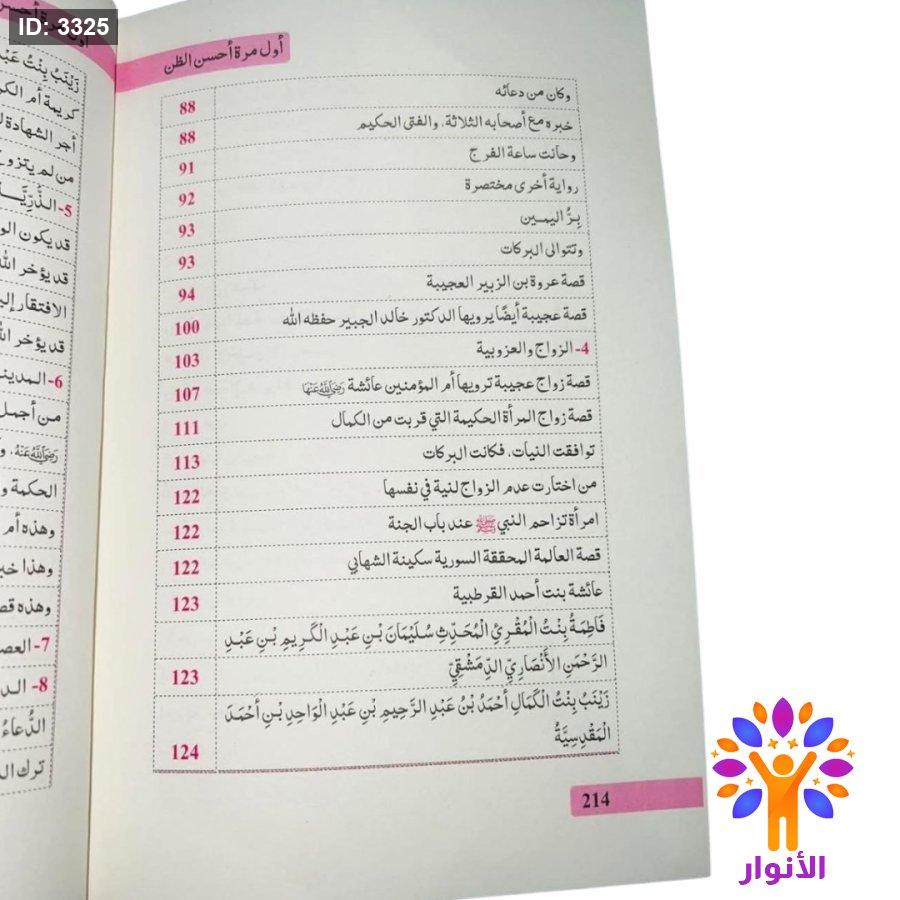 ID: 3325
أول مرة أحسن الظن
وكان من دعائه 88
خبره مع أصحابه الثلاثة، والفتى الحكيم 88
وحانت ساعة الفرج 91
رواية أخرى مختصرة 92
بِرُّ اليمين 93
وتتوالى البركات 93
قصة عروة بن الزبير العجيبة 94
قصة عجيبة أيضًا يرويها الدكتور خالد الجبير حفظه الله 100
4- الزواج والعزوبية 103
قصة زواج عجيبة ترويها أم المؤمنين عائشة رَضِيَ اللَّهُ عَنْهَا 107
قصة زواج المرأة الحكيمة التي قربت من الكمال 111
توافقت النيات، فكانت البركات 113
من اختارت عدم الزواج لنية في نفسها 122
امرأة تزاحم النبي ﷺ عند باب الجنة 122
قصة العالمة المحققة السورية سكينة الشهابي 122
عائشة بنت أحمد القرطبية 123
فَاطِمَةُ بِنْتُ الْمُقْرِئِ الْمُحَدِّثِ سُلَيْمَانَ بْنِ عَبْدِ الْكَرِيمِ بْنِ عَبْدِ
الرَّحْمَنِ الأَنْصَارِيِّ الدِّمَشْقِيِّ 123
زَيْنَبُ بِنْتُ الْكَمَالِ أَحْمَدُ بْنُ عَبْدِ الرَّحِيمِ بْنِ عَبْدِ الْوَاحِدِ بْنِ أَحْمَدَ
الْمَقْدِسِيَّةُ 124
214
زَيْنَبُ بِنْتُ
كريمة أم
أجر الشهادة
من لم يتزوج
5-
قد يكون
قد يؤخر
الافتقار
قد يؤخر
6-
من أجمل
رَضِيَ اللَّهُ عَنْهُ
الحكمة
وهذه أم
وهذا
وهذه
7-
8-
الدُّعَاءُ
ترك
الأنوار